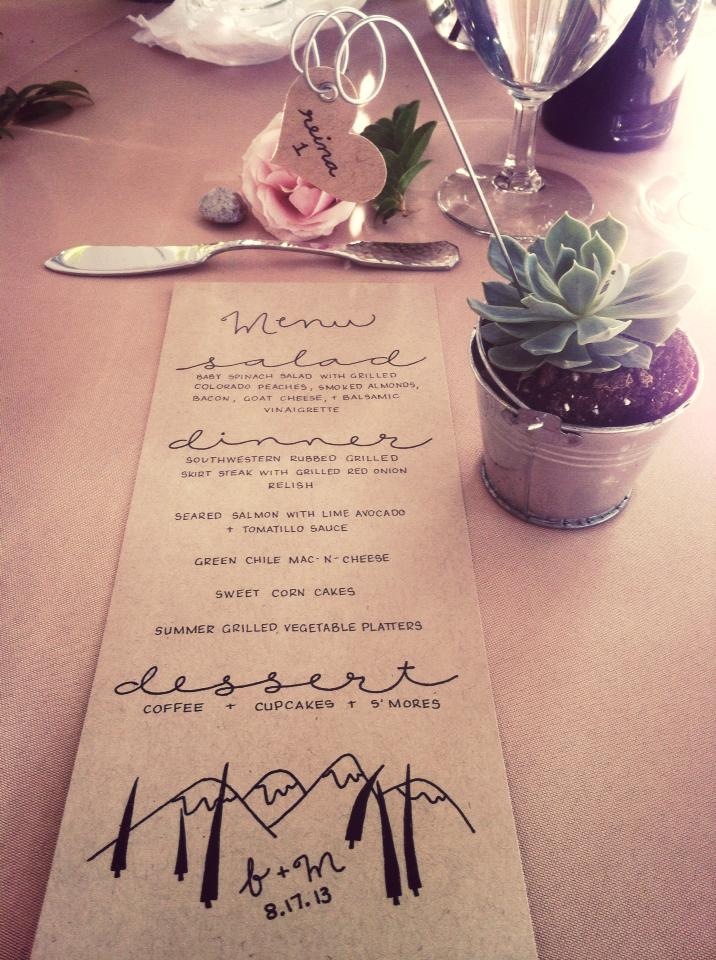 reina
1
Menu
salad
BABY SPINACH SALAD WITH GRILLED
COLORADO PEACHES, SMOKED ALMONDS,
BACON, GOAT CHEESE, + BALSAMIC
VINAIGRETTE
dinner
SOUTHWESTERN RUBBED GRILLED
SKIRT STEAK WITH GRILLED RED ONION
RELISH
SEARED SALMON WITH LIME AVOCADO
+ TOMATILLO SAUCE
GREEN CHILE MAC-N-CHEESE
SWEET CORN CAKES
SUMMER GRILLED VEGETABLE PLATTERS
dessert
COFFEE + CUPCAKES + S'MORES
b + m
8.17.13